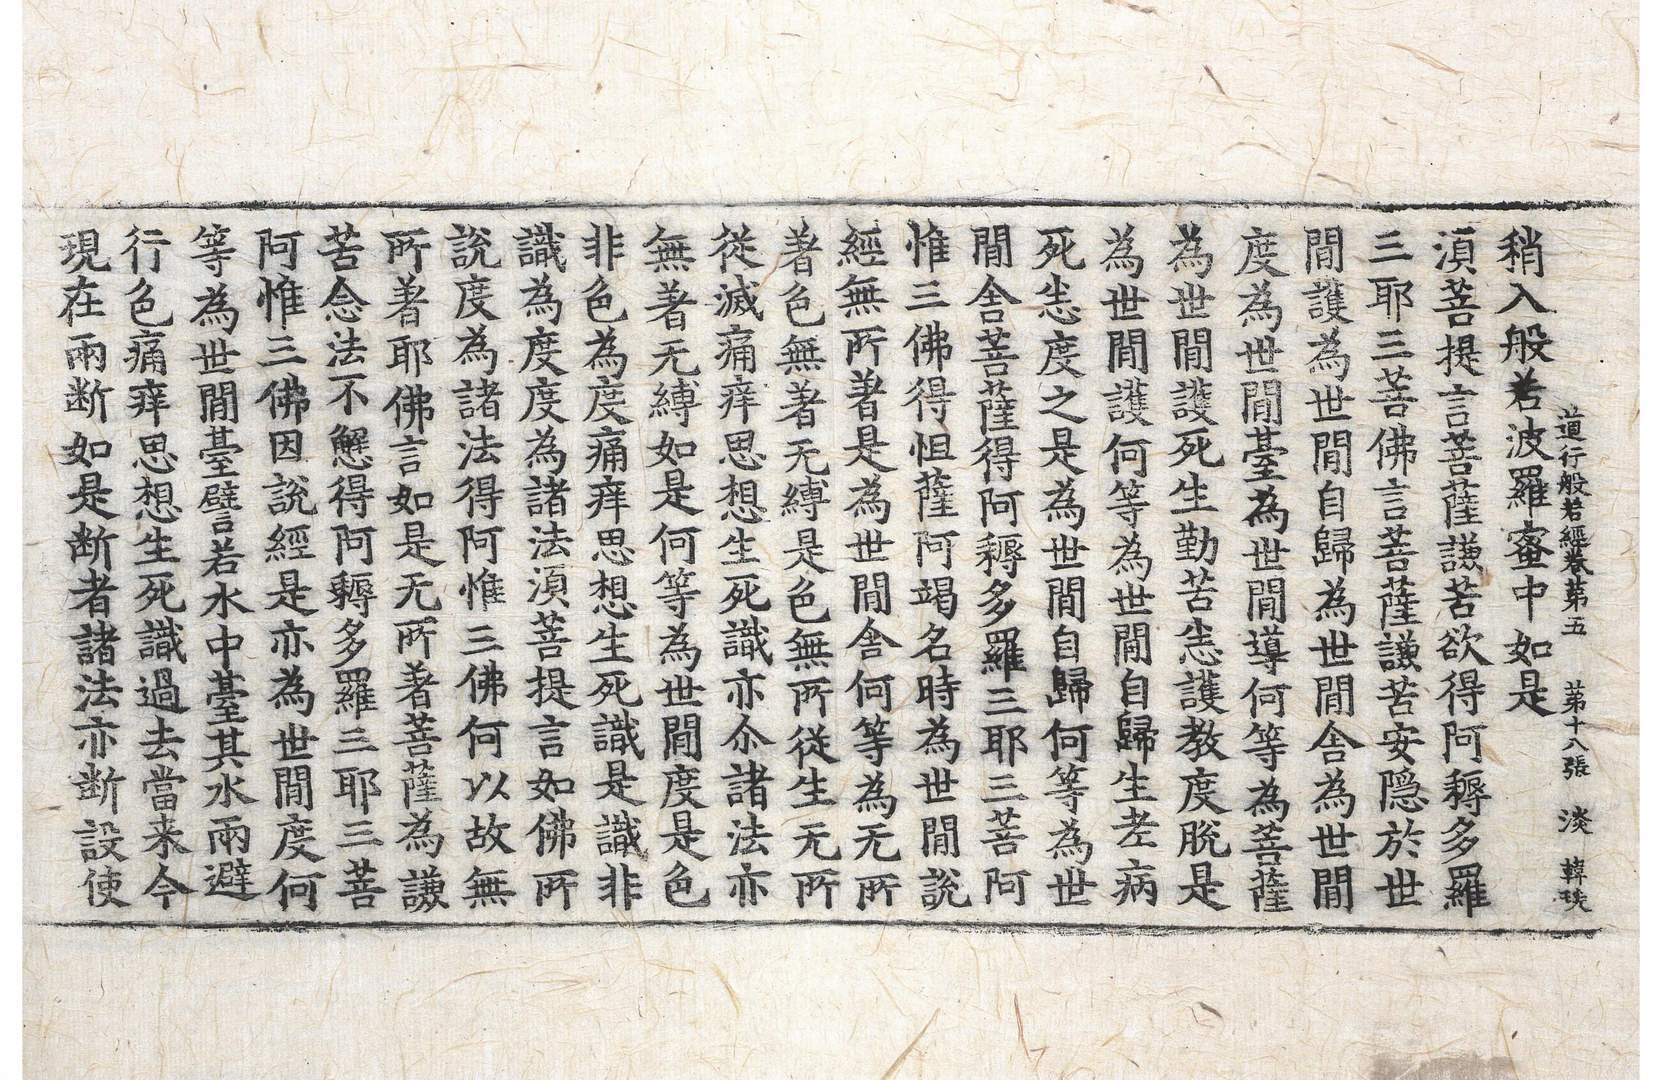 道行般若經卷第五　第十八張　淡　韓琰
稍入般若波羅蜜中如是
湏菩提言菩薩謙苦欲得阿耨多羅
三耶三菩佛言菩薩謙苦安隱於世
閒護為世閒自歸為世閒舍為世閒
度為世閒臺為世閒導何等為菩薩
為世閒護死生勤苦悉護教度脫是
為世閒護何等為世閒自歸生老病
死悉度之是為世閒自歸何等為世
閒舍菩薩得阿耨多羅三耶三菩阿
惟三佛得怛薩阿竭名時為世閒說
經無所著是為世閒舍何等為无所
著色無著无縛是色無所從生无所
從滅痛痒思想生死識亦尒諸法亦
無著无縛如是何等為世閒度是色
非色為度痛痒思想生死識是識非
識為度度為諸法湏菩提言如佛所
說度為諸法得阿惟三佛何以故無
所著耶佛言如是无所著菩薩為謙
苦念法不懈得阿耨多羅三耶三菩
阿惟三佛因說經是亦為世閒度何
等為世閒臺譬若水中臺其水兩避
行色痛痒思想生死識過去當来今
現在兩断如是断者諸法亦断設使